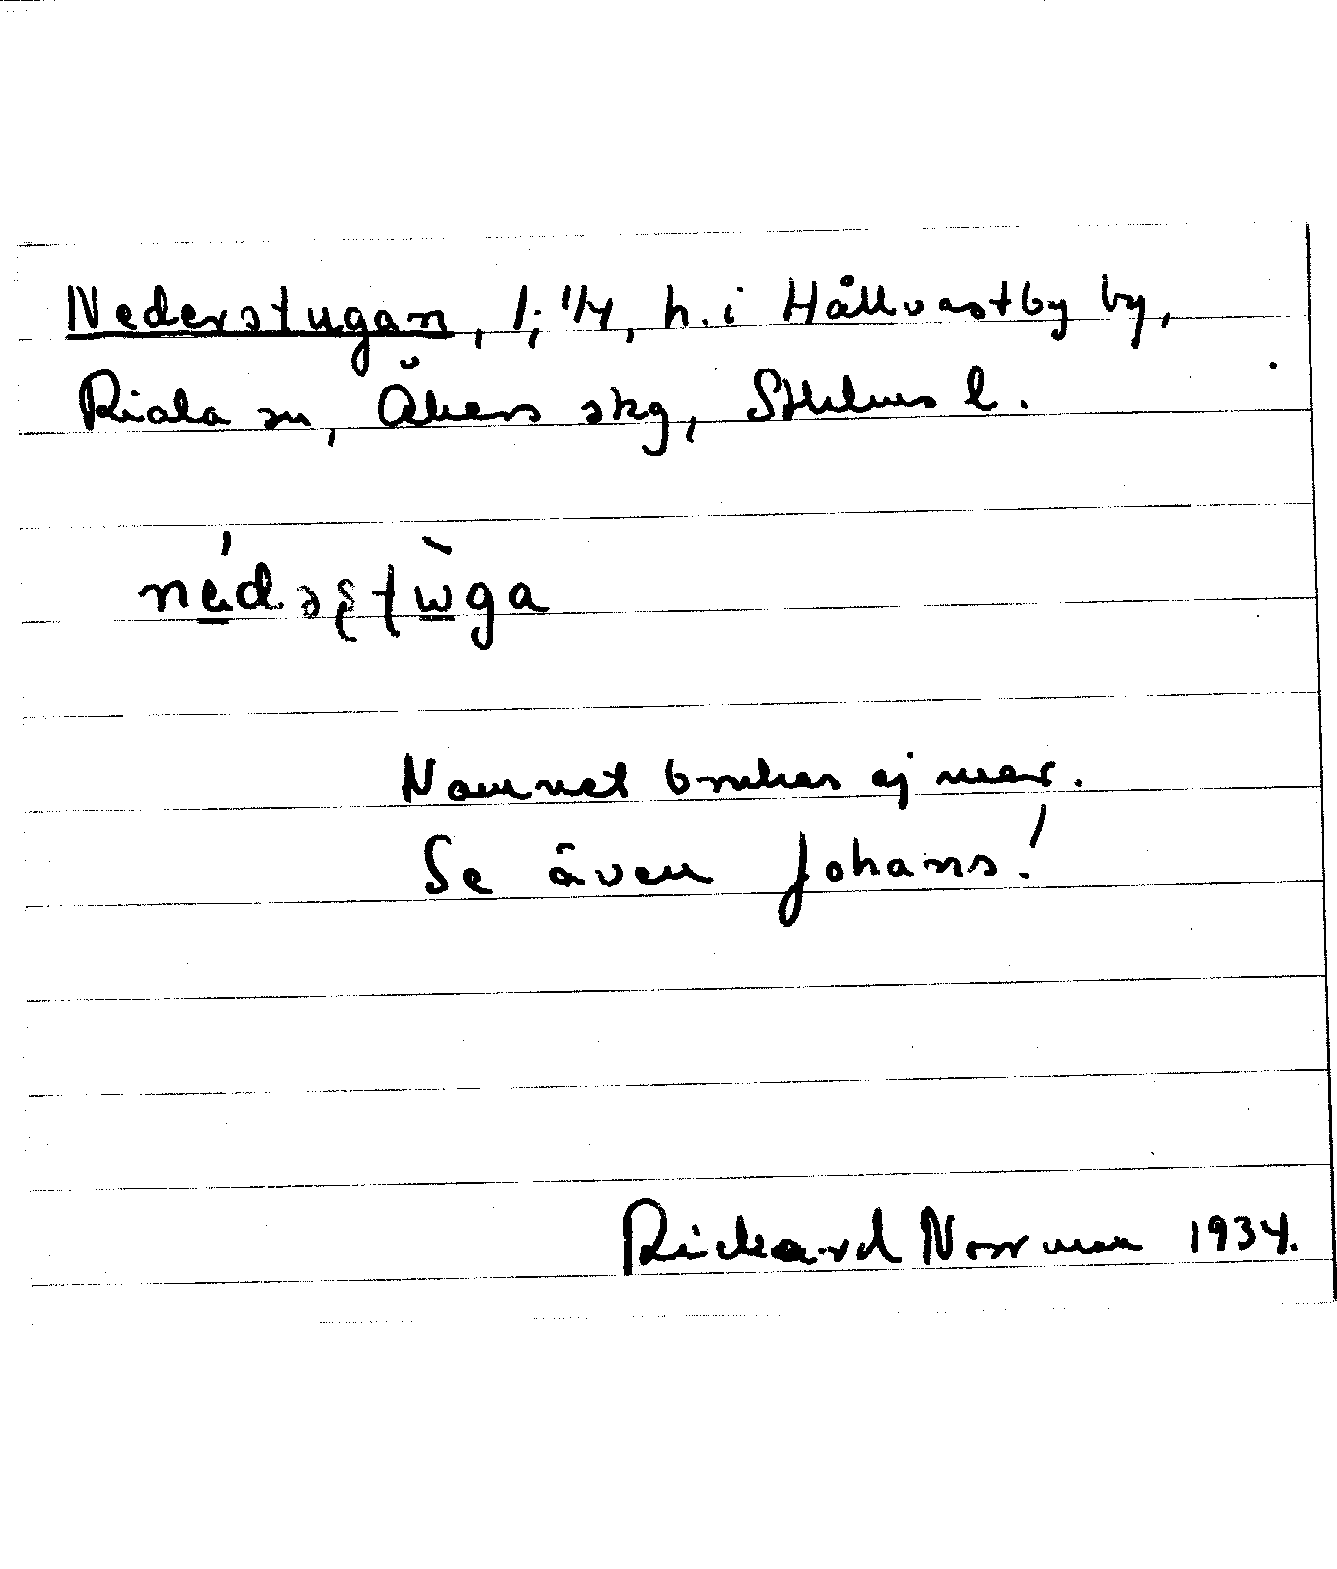 Nederstugan, 1; 1/4, h. i Hållvastby by,
Riala sn, Åkers skg, Sthlms l.
Namnet brukas ej mer.
Se även Johans!
Rickard Norrman 1934.